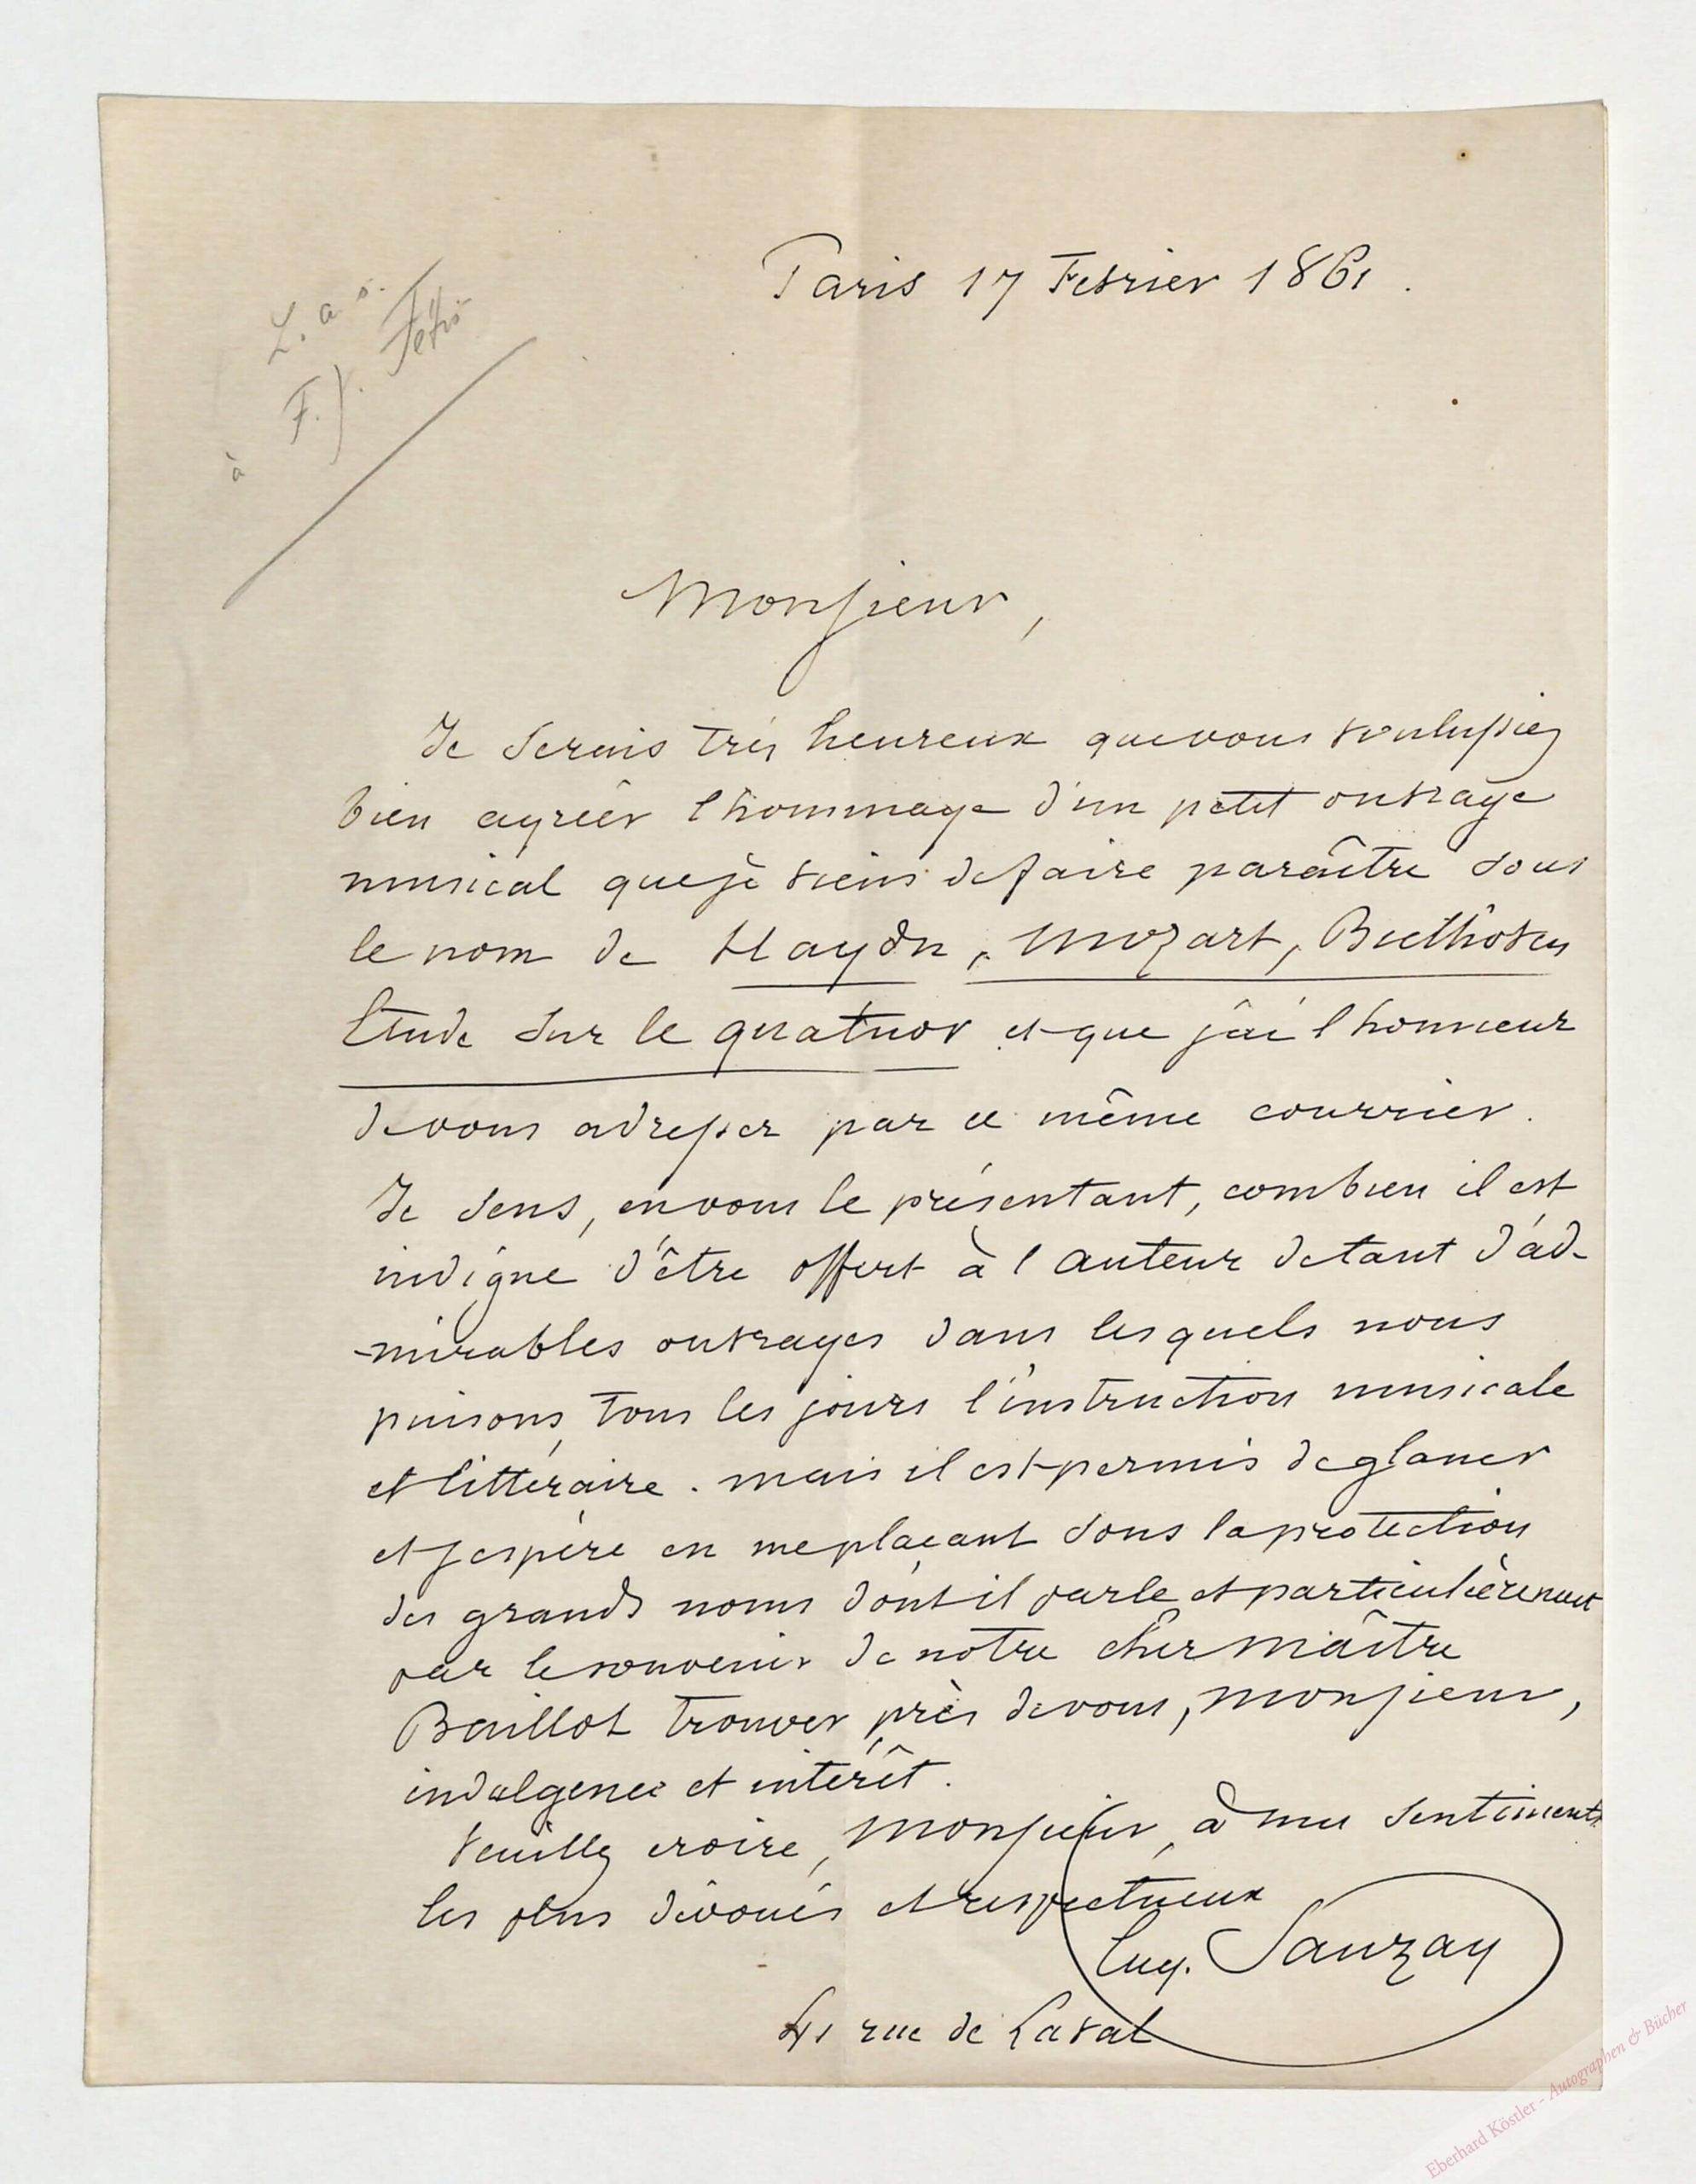 Paris 17 Fevrier 1861.
L. a. s.
à F. J. Fétis
Monsieur,
Je serais très heureux que vous voulussiez
bien agréer l'hommage d'un petit ouvrage
musical que je viens de faire paraître sous
le nom de Haydn, Mozart, Beethoven
Etude sur le quatuor et que j'ai l'honneur
de vous adresser par ce même courrier.
Je sens, en vous le présentant, combien il est
indigne d'être offert à l'auteur de tant d'ad-
-mirables ouvrages dans lesquels nous
puisons, tous les jours l'instruction musicale
et littéraire. mais il est permis de glaner
et j'espère en me plaçant sous la protection
des grands noms dont il parle et particulièrement
par le souvenir de notre cher maître
Baillot trouver près de vous, Monsieur,
indulgence et intérêt.
Veuillez croire, Monsieur, à mes sentiments
les plus dévoués et respectueux
Eug. Sauzay
41 rue de Laval
Eberhard Köstler - Autographen & Bücher